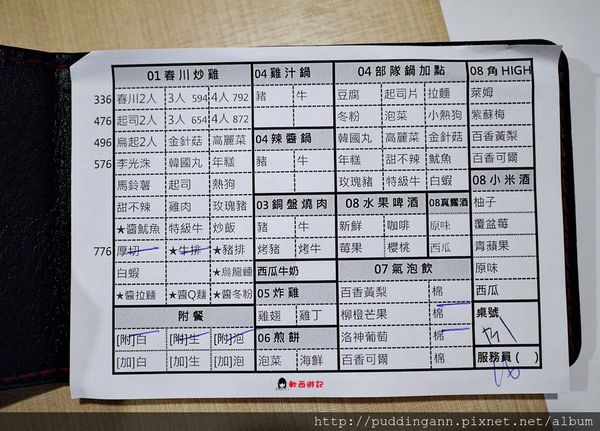 01 春川炒雞
336 春川2人 3人 594 4人 792
476 起司2人 3人 654 4人 872
496 烏起2人 金針菇 高麗菜
576 李光洙 韓國丸 年糕
馬鈴薯 起司 熱狗
甜不辣 雞肉 玫瑰豬
★醬魷魚 特級牛 炒飯
776 厚切 ★牛排 ★豬排
白蝦 ★烏龍麵
★醬拉麵 ★醬Q麵 ★醬冬粉
附餐
[附]白 [附]生 [附]泡
[加]白 [加]生 [加]泡
04 雞汁鍋
豬 牛
04 辣醬鍋
豬 牛
03 銅盤燒肉
豬 牛
烤豬 烤牛
西瓜牛奶
05 炸雞
雞翅 雞丁
06 煎餅
泡菜 海鮮
04 部隊鍋加點
豆腐 起司片 拉麵
冬粉 泡菜 小熱狗
韓國丸 高麗菜 金針菇
年糕 甜不辣 魷魚
玫瑰豬 特級牛 白蝦
08 水果啤酒
新鮮 咖啡
莓果 櫻桃
08真露酒
原味
西瓜
07 氣泡飲
百香黃梨 棉
柳橙芒果 棉
洛神葡萄 棉
百香可爾 棉
08 角 HIGH
萊姆
紫蘇梅
百香黃梨
百香可爾
08 小米酒
柚子
覆盆莓
青蘋果
原味
西瓜
桌號
服務員 ( )
軟西遊記
http://puddingann.pixnet.net/album